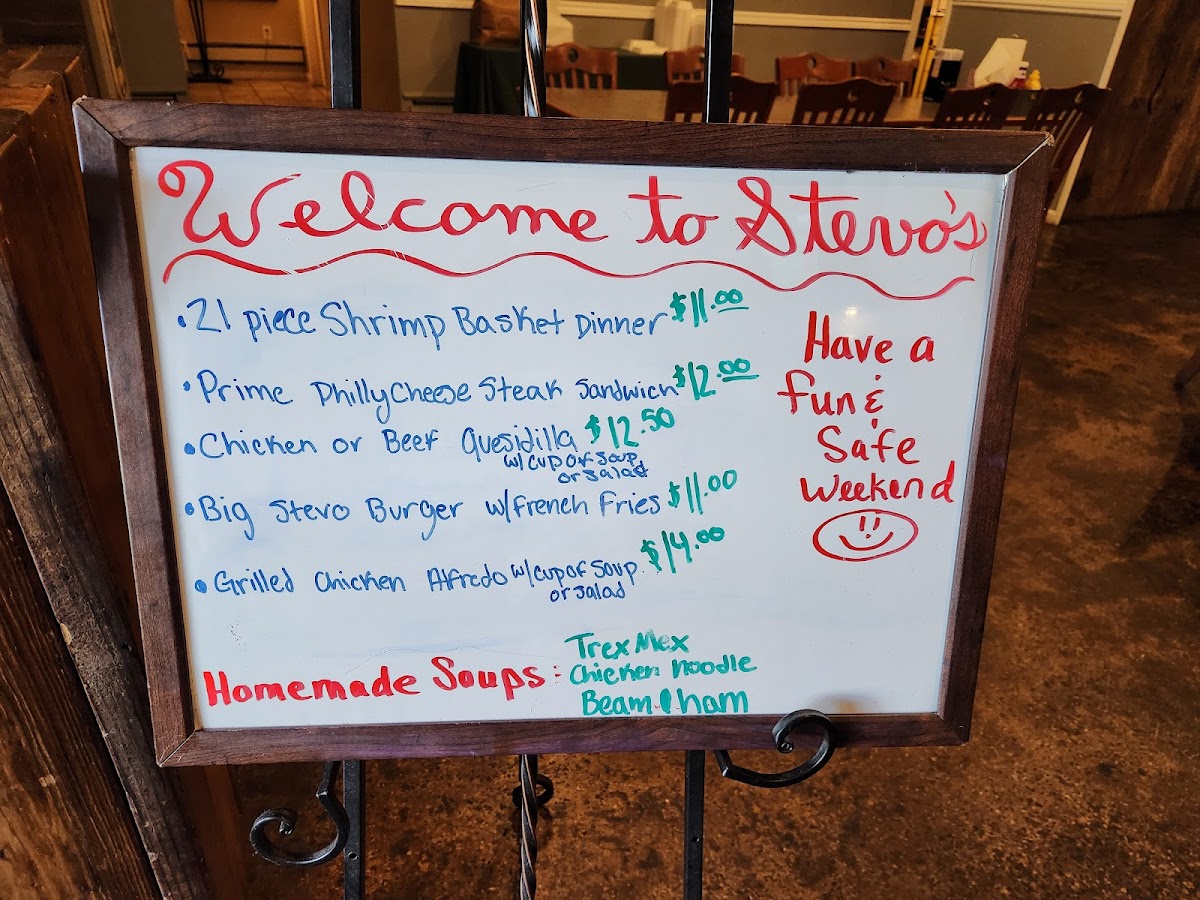 Welcome to Stevo's
• 21 piece Shrimp Basket Dinner $11.00
• Prime Philly Cheese Steak Sandwich $12.00
• Chicken or Beef Quesidilla $12.50
w/ cup of soup
or salad
• Big Stevo Burger w/ french fries $11.00
• Grilled Chicken Alfredo w/ cup of soup $14.00
or salad
Have a
fun &
Safe
weekend
Homemade Soups:
Trex Mex
Chicken noodle
ham